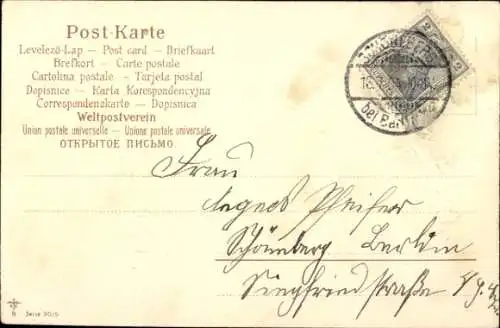 Post-Karte
Levelező-Lap — Post card — Briefkaart
Brefkort — Carte postale
Cartolina postale — Tarjeta postal
Dopisnice — Karta Korespondencyjna
Correspondenzkarte — Dopisnica
Weltpostverein
Union postale universelle — Unione postale universale
ОТКРЫТОЕ ПИСЬМО
bei
Frau
Agnes Pfeifer
Schöneberg Berlin
Siegfriedstraße
Serie